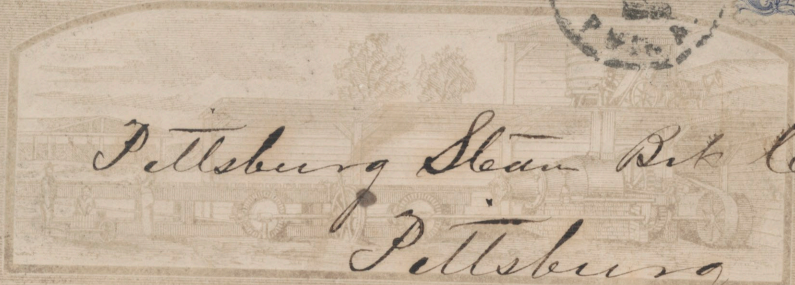 PHILA
Pittsburg Steam Brk Co
Pittsburg